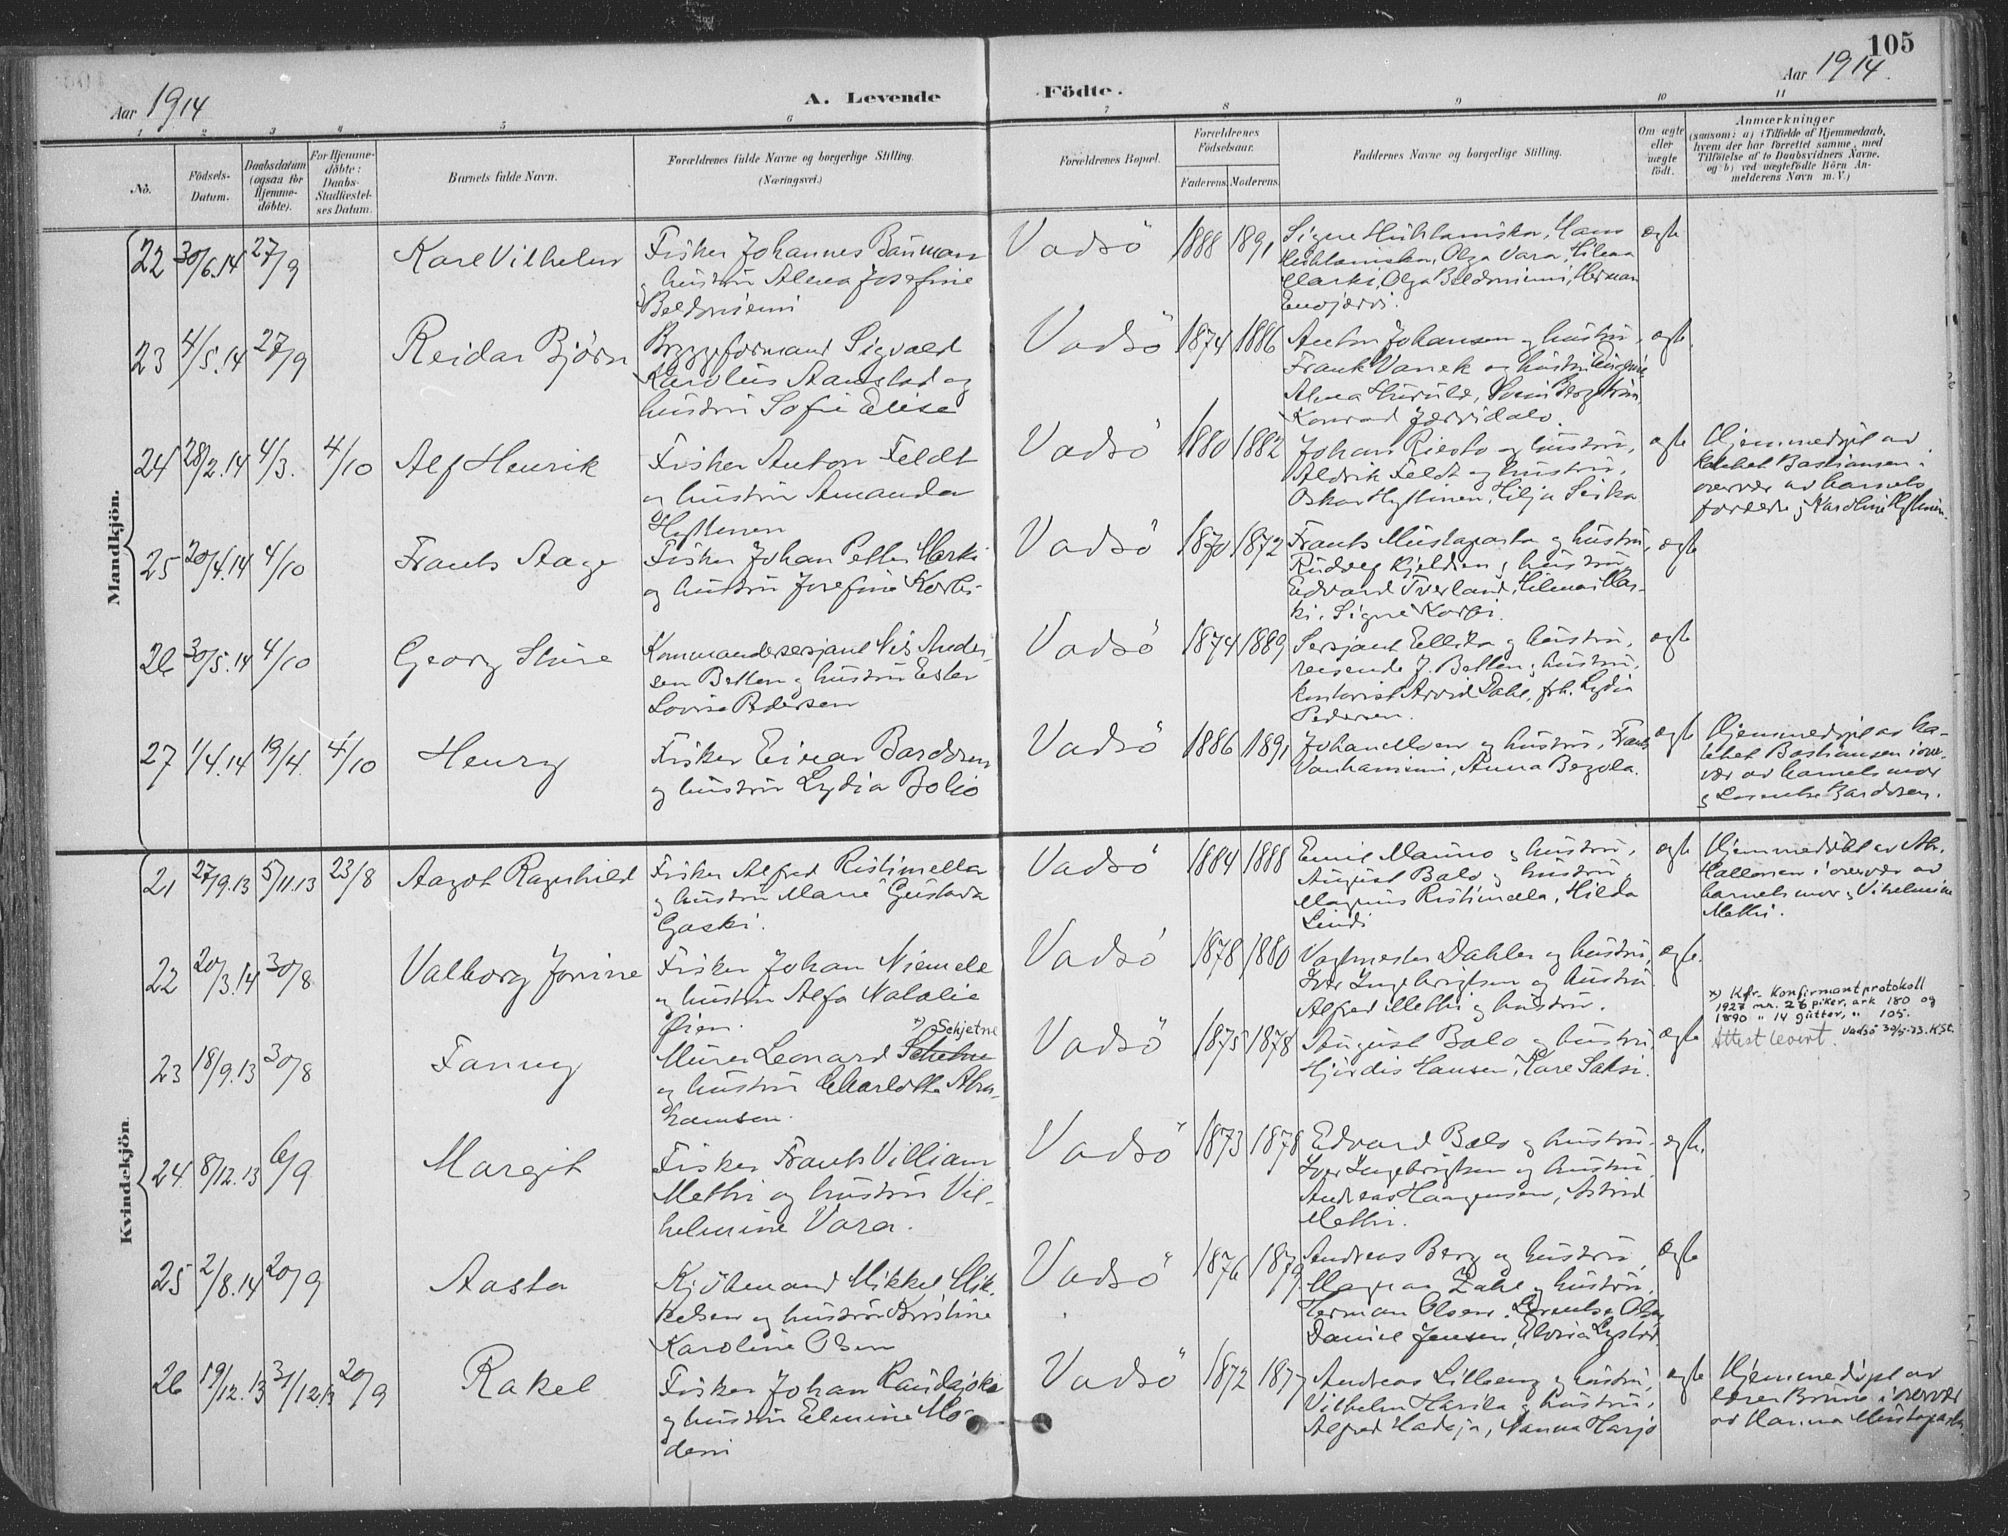 105
Aar 1914
A. Levende Födte.
Aar 1914.
1 2 3 4 5 6 7 8 9 10 11
No.
Födsels-Datum.
Daabsdatum (ogsaa for Hjemme-döbte).
For Hjemme-döbte: Daabs-Stadfæstel-ses Datum.
Barnets fulde Navn.
Forældrenes fulde Navne og borgerlige Stilling.
(Næringsvei.)
Forældrenes Bopæl.
Forældrenes Födselsaar.
Faderens. Moderens.
Faddernes Navne og borgerlige Stilling.
Om ægte eller uægte födt.
Anmærkninger
(saasom: a) i Tilfælde af Hjemmedaab,
hvem der har forrettet samme, med
Tilföielse af to Daabsvidners Navne,
og b) ved uægtefödte Börn An-
melderens Navn m. V.)
Mandkjön.
22 30/6.14 27/9 Karl Vilhelm
Fisker Johannes Bauman
og hustru Alma Josefine
Vadsö 1888 1891
Olga Vara, Hilma
Marki, Olga
Herman
ægte
23 4/5.14 27/9 Reidar Bjørn
Bryggeformand Sigvald
Karolius Aanstad og
hustru Sofie Elise
Vadsö 1874 1886
Anton Johansen og hustru,
Frank Vanek og hustru
Konrad Jærvidalo.
ægte.
24 28/2.14 4/3. 4/10 Alf Henrik
Fisker Anton Feldt
og hustru Amanda
Hyttinen
Vadsö 1880 1882
Johan Riesto og hustru,
Aldrik Feldt og hustru,
Oskar Hyttinen, Hilja Siska
ægte
Hjemmedøpt av
kateket Bastiansen i
overvær av barnets
forældre og Karoline Hyttinen.
25 20/4.14 4/10 Frants Aage
Fisker Johan Petter Marki
og hustru Josefine Korbi
Vadsö 1870 1872
Frants Mustaparta og hustru,
og hustru,
Edvard Tverland, Hilma Mar-
ki, Signe Korbi.
ægte
26 30/5.14 4/10 Georg Sture
Kommandersersjant Nils Ander-
sen Betten og hustru Ester
Lovise Pedersen
Vadsö 1874 1889
Sersjant Ellila og hustru,
reisende J. Betten og hustru,
kontorist Arvid Dahl, frk. Lydia
Pedersen.
ægte
27 1/4.14 19/4. 4/10 Henry
Fisker Einar Bardsen
og hustru Lydia Bolio
Vadsö 1886 1891
Johan Moen og hustru, Frants
Vanhaniemi, Anna Begola.
ægte
Hjemmedøpt av ka-
teket Bastiansen i over-
vær av barnets mor
og Bardsen.
Kvindekjön.
21 27/9.13 5/11.13 23/8 Aagot Ragnhild
Fisker Alfred Ristimella
og hustru Marie Gustava
Gaski.
Vadsö 1884 1888
Emil Mauno og hustru,
August Balo og hustru,
Magnus Ristimella, Hilda
Lindi
ægte
Hjemmedøbt av
i overvær av
barnets mor og Vilhelmine
Methi.
22 20/3.14 30/8 Valborg Jonine
Fisker Johan Niemela
og hustru Alfa Natalie
Øien.
Vadsö 1878 1880
Vagtmester Dahler og hustru,
Iver Ingebrigtsen og hustru
Alfred Methi og hustru.
ægte.
23 18/9.13 30/8 Fanny
x) Schjetne
Murer Leonard
og hustru Charlotte Abra-
hamsen.
Vadsö 1875 1878
August Balo og hustru,
Hjørdis Hansen, Kare Saksi.
ægte
x) Kfr. Konfirmantprotokoll
1927 nr. 26 piker, ark 180 og
1890 " 14 gutter, " 105.
Vadsø 30/5-73. K.St.
Attest levert.
24 8/12.13 6/9 Margit
Fisker Frants Villiam
Methi og hustru Vil-
helmine Vara.
Vadsö 1873 1878
Edvard Balo og hustru,
Iver Ingebrigtsen og hustru,
Andreas Haagensen, Astrid
Methi.
ægte.
25 2/8.14 20/9 Aasta
Kjøbmand Mikkel Mik-
kelsen og hustru Kristine
Karoline Olsen
Vadsö 1876 1879
Andreas Berg og hustru,
Magnar Dahl og hustru,
Herman Olsen, Lorentse Olsen
Daniel Jensen,
ægte
26 19/12.13 31/12.13 20/9 Rakel
Fisker Johan Raudajoki
og hustru Elmine Mo-
deni
Vadsö 1872 1877
Andreas Lilleeng og hustru,
Vilhelm Harila og hustru,
Alfred Hadaja, Nanna Harjo
ægte
Hjemmedøpt av
lærer Bruno i overvær
av Hanna Mustaparta.